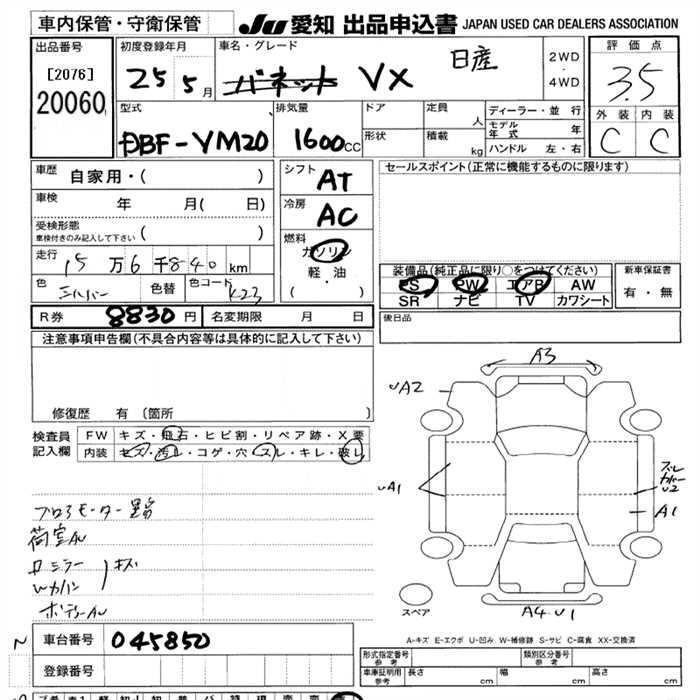 車内保管・守衛保管
JU 愛知 出品申込書 JAPAN USED CAR DEALERS ASSOCIATION
出品番号
[2076]
20060
初度登録年月
25 5月
車名・グレード
バネット VX 日産
2WD
・
4WD
評価点
3.5
外装 内装
C C
型式
DBF-VM20
排気量
1600cc
ドア
形状
定員 人
積載 kg
ディーラー・並行
モデル年式 年
ハンドル 左・右
車歴
自家用・( )
車検
年 月( 日)
受検形態
車検付きのみ記入して下さい ( )
走行
15万6千840km
色
シルバー
色替
色コード
K23
シフト
AT
冷房
AC
燃料
ガソリン
軽・油
( )
セールスポイント(正常に機能するものに限ります)
装備品(純正品に限り○をつけてください)
PS PW エアB AW
SR ナビ TV カワシート
新車保証書
有・無
後日品
R券 8830円 名変期限 月 日
注意事項申告欄(不具合内容等は具体的に記入して下さい)
修復歴 有 [箇所 ]
検査員
記入欄
FW キズ・飛石・ヒビ割・リペア跡・X要
内装 キズ・汚レ・コゲ・穴・スレ・キレ・破レ
ブロアモーター
荷室AU
ミラー
キズ
ボディーAU
A3
UA2
UA1
U2
A1
A4.U1
スペア
A-キズ E-エクボ U-凹み W-補修跡 S-サビ C-腐食 XX-交換済
車台番号 045850
登録番号
形式指定番号
参考
類別区分番号
参考
車庫証明用
参考
長さ cm 幅 cm 高さ cm